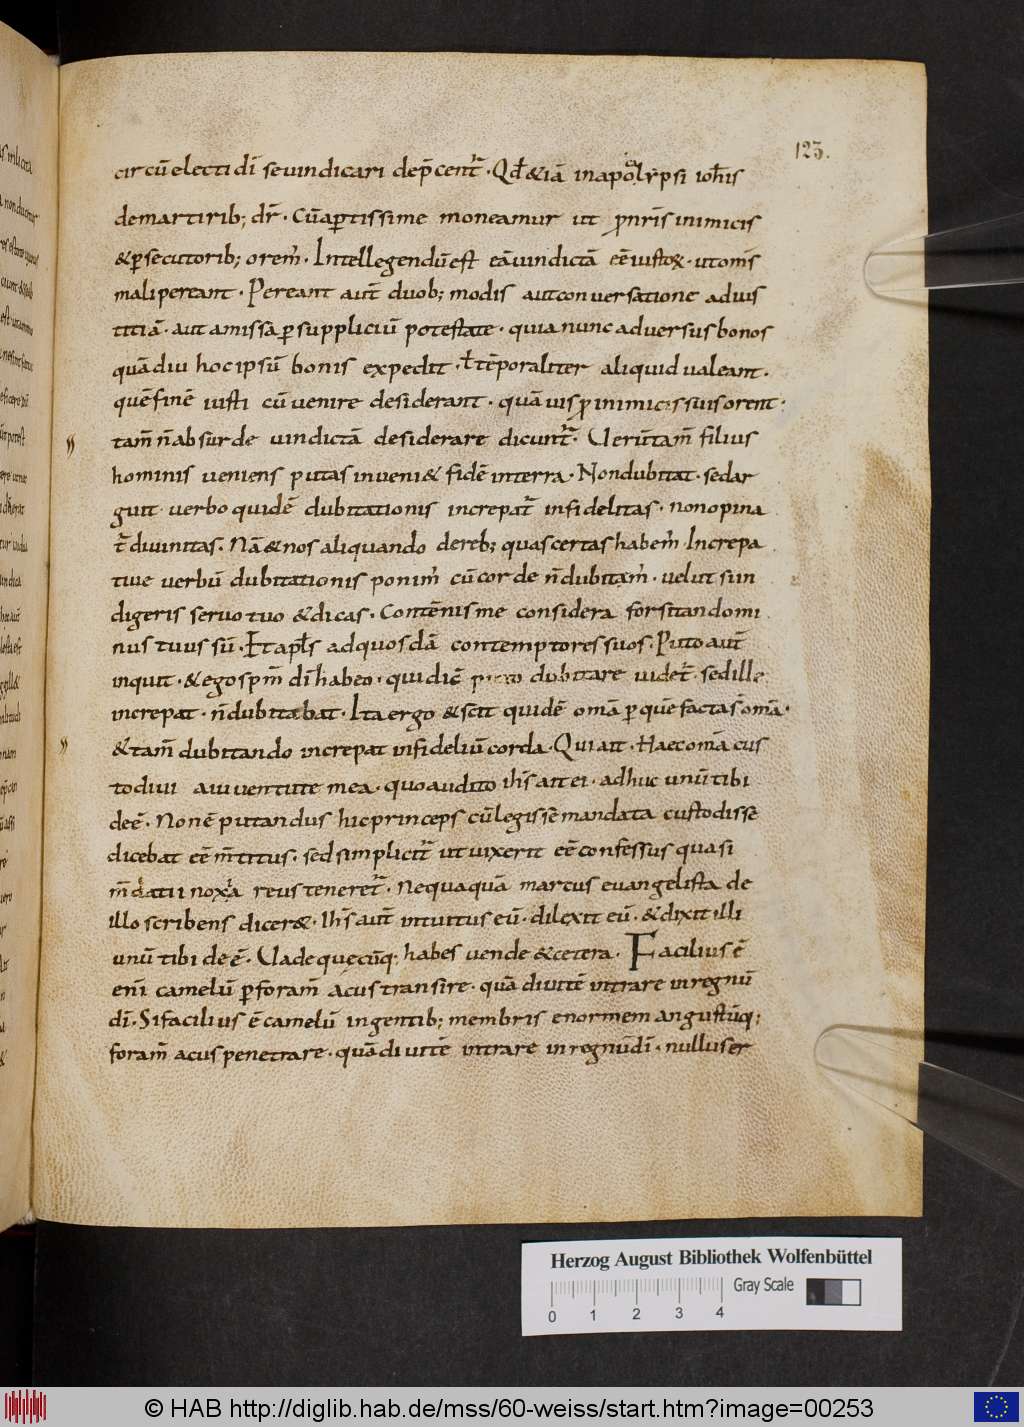 123.
circū electi dī se vindicari dep̄cent̄. Qd̄ &iā in apocalypsi ioh̄is
de martirib; dr̄. Cū ap̱tissime moneamur ut p̱ nr̄is inimicis
& p̱secutorib; orem̄. Intellegendū est eā vindictā eē iustoꝝ. ut om̄s
mali pereant. Pereant aut̄ duob; modis aut conversatione ad ius
titiā. aut amissa p̱ suppliciū potestate. quia nunc adversus bonos
quādiu hoc ipsū bonis expedit. ł tēporaliter aliquid valeant.
quē finē iusti cū venire desiderant. quāvis p̱ inimicis suis orent;
tam̄ n̄ absurde vindictā desiderare dicunt̄. Verūtam̄ filius
hominis veniens putas inveni& fidē in terra. Non dubitat. sed ar
guit. verbo quidē dubitationis increpat̄ infidelitas. non opina
t̄ divinitas. Nā & nos aliquando de reb; quas certas habem̄. Increpa
tiue verbū dubitationis ponim̄ cū corde n̄ dubitam̄. velut si in
digeris servo tuo & dicas. Contēnis me considera forsitan domi
nus tuus sū. Et apl̄s ad quosdā contemptores suos. Puto aut̄
inquit. & ego spm̄ dī habeo. qui dic̄ puto dubitare videt̄. sed ille
increpat. n̄ dubitabat. Ita ergo & scit quidē omā p̱ quē facta s̄ omā.
& tam̄ dubitando increpat infideliū corda. Qui ait. Haec omā cus
todivi a iuventute mea. quo audito ih̄s ait ei. adhuc unū tibi
deē. Non ē putandus hic princeps cū legis sē mandata custodisse
dicebat eē m̄titus. sed simplicit̄ ut vixerit eē confessus quasi
m̄datii noxa reus teneret̄. Nequaquā marcus euangelista de
illo scribens dicer&. Ih̄s aut̄ intuitus eū. dilexit eū. & dixit illi
unū tibi deē. Vade quęcūq; habes vende & cetera. Facilius ē
eni camelū p̱ foram̄ acus transire. quā divitē intrare in regnū
dī. Si facilius ē camelū ingentib; membris enormem angustūq;
foram̄ acus penetrare. quā divitē intrare in regnū dī. nullus er
Herzog August Bibliothek Wolfenbüttel
Gray Scale
0 1 2 3 4
© HAB http://diglib.hab.de/mss/60-weiss/start.htm?image=00253